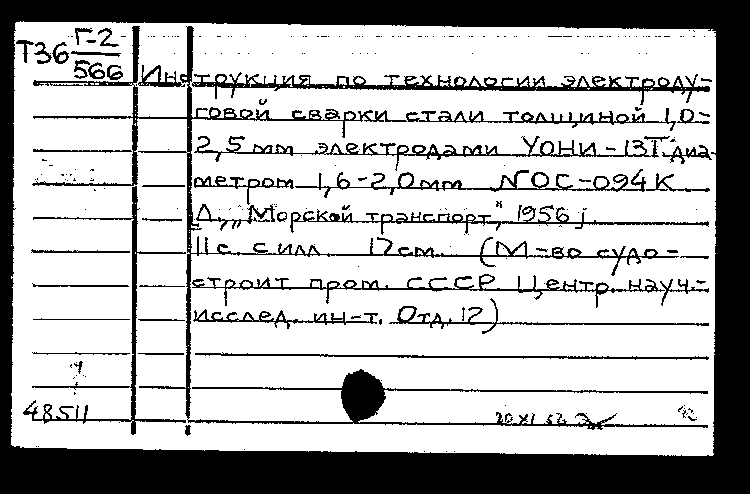 Т36 Г-2
566
Инструкция по технологии электроду-
говой сварки стали толщиной 1,0-
2,5 мм электродами УОНИ-13Т диа-
метром 1,6-2,0мм NОС-094К
Л., „Морской транспорт", 1956 j.
11 с. с илл. 17см. (М-во судо-
строит пром. СССР. Центр. науч.-
исслед. ин-т. Отд. 12)
48511
20 XI 62